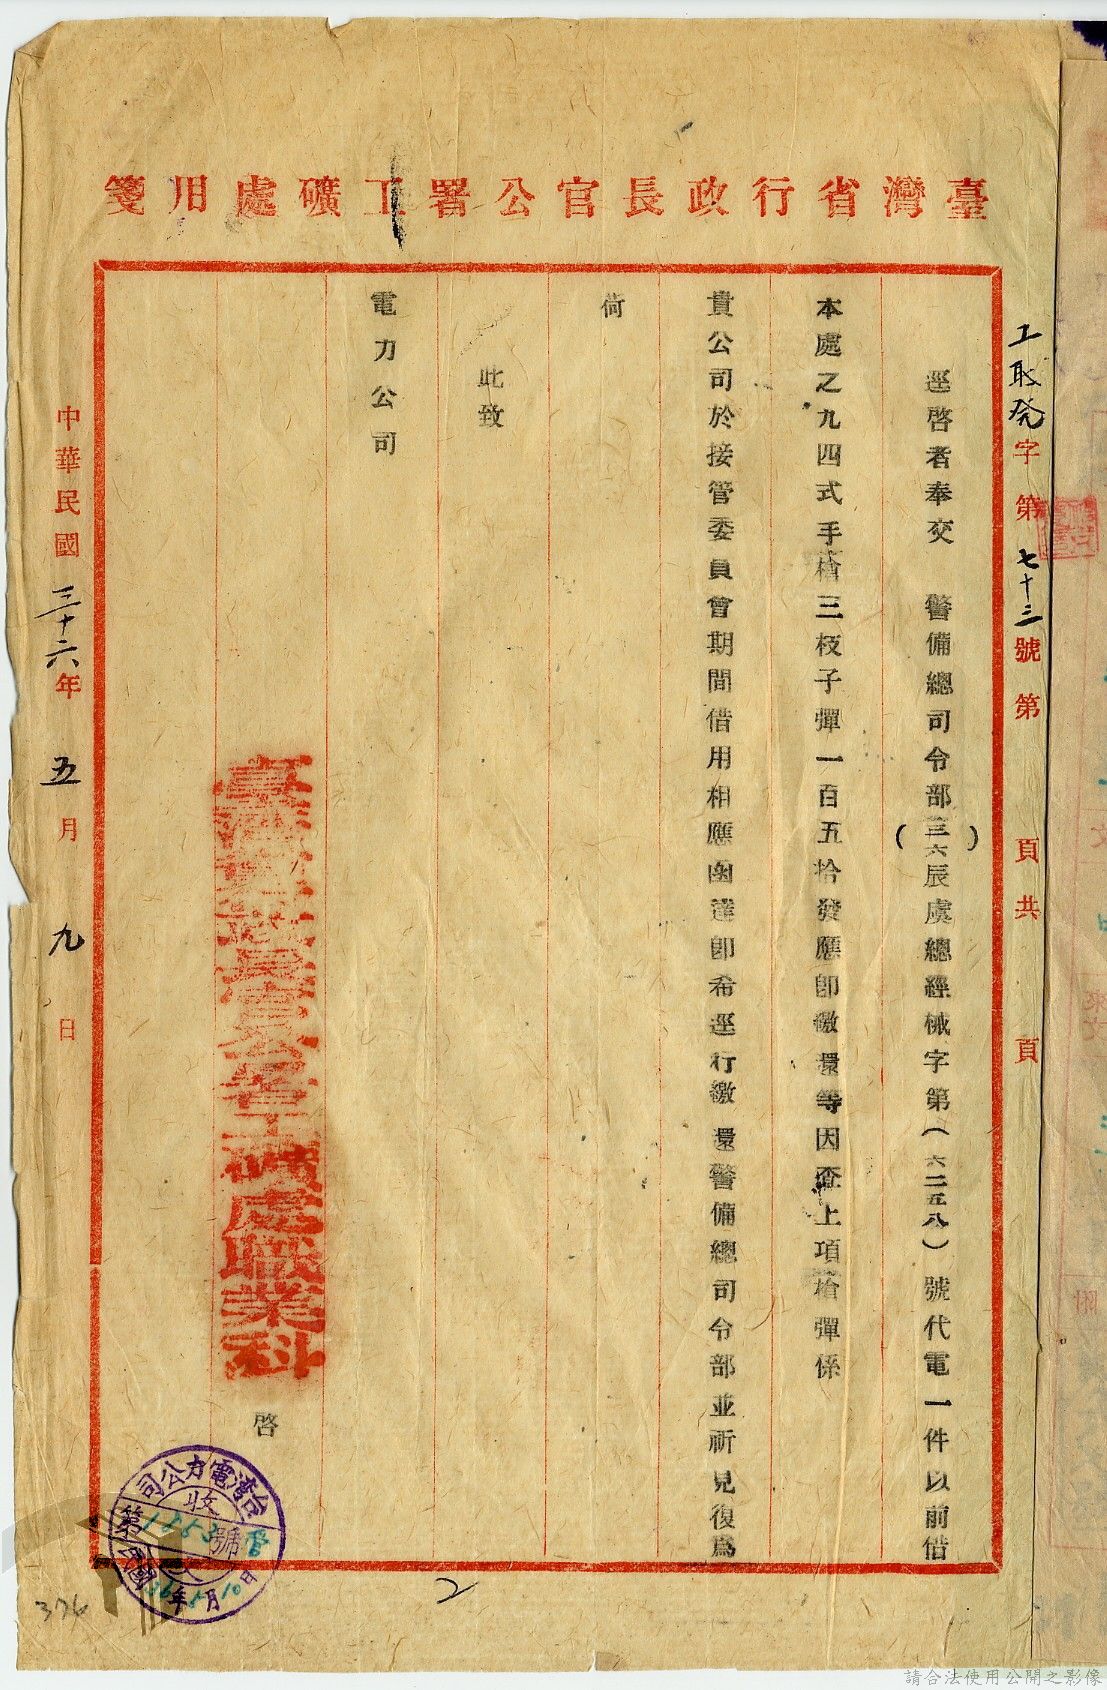 臺灣省行政長官公署工礦處用箋
工取発字第七十三號第 頁共 頁
逕啓者奉交 警備總司令部(三六)辰虞總經械字第(六二五八)號代電一件以前借
本處之九四式手槍三枝子彈一百五拾發應即繳還等因查上項槍彈係
貴公司於接管委員會期間借用相應函達即希逕行繳還警備總司令部並祈見復爲
荷
此致
電力公司
臺灣省行政長官公署工礦處職業科 啓
中華民國三十六年五月九日
台灣電力公司
收
第1853號
文
36年5月10日
2
374
請合法使用公開之影像